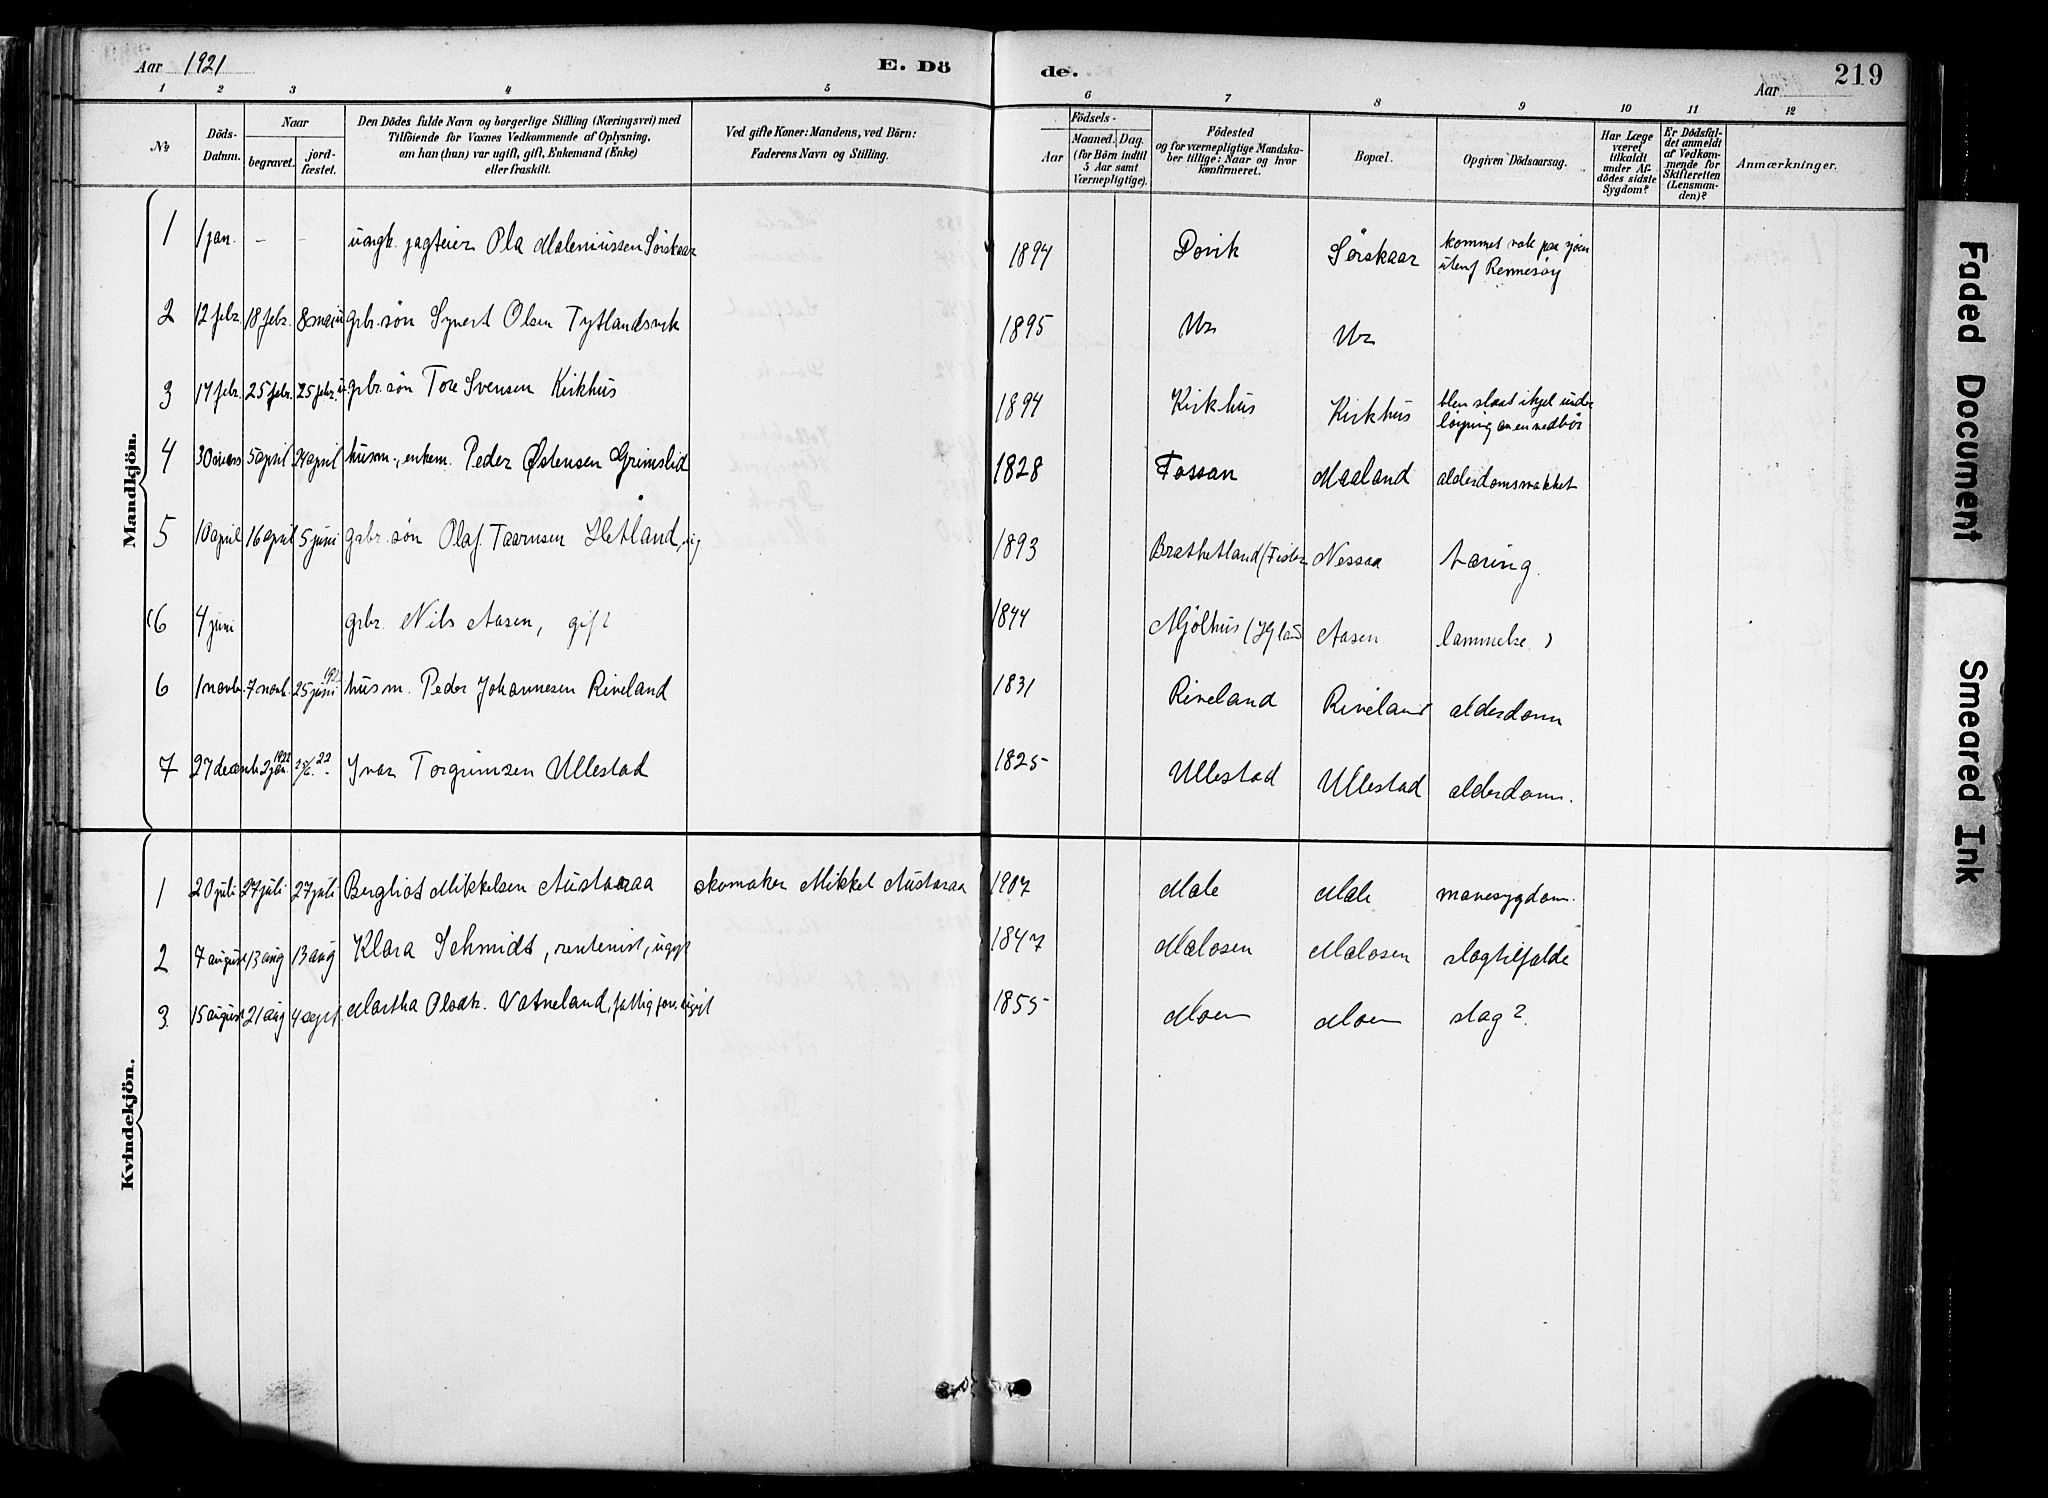 Aar 1921
E. Dö
de.
Aar
219
1 2 3 4 5 6 7 8 9 10 11 12
No
Döds-
Datum.
Naar
begravet.
jord-
fæstet.
Den Dödes fulde Navn og borgerlige Stilling (Næringsvei) med
Tilföiende for Voxnes Vedkommende af Oplysning,
om han (hun) var ugift, gift, Enkemand (Enke)
eller fraskilt.
Ved gifte Koner: Mandens, ved Börn:
Faderens Navn og Stilling.
Födsels-
Aar
Maaned. Dag.
(for Börn indtil
5 Aar samt
Værnepligtige).
Födested
og for værnepligtige Mandska-
ber tillige: Naar og hvor
konfirmeret.
Bopæl.
Opgiven Dödsaarsag.
Har Læge
været
tilkaldt
under Af-
dödes sidste
Sygdom?
Er Dödsfal-
det anmeldt
af Vedkom-
mende for
Skifteretten
(Lensman-
den)?
Anmærkninger.
Mandkjön.
1 1 jan. - - ungk. jagteier Ola Maleniussen Sörskaar 1894 Dovik Sörskaar kommet vek paa sjöen
utenf Rennesöy
2 12 febr. 18 febr. 8 mai grbr. sön Syvert Olsen Tytlandsvik 1895 Ur Ur
3 17 febr. 25 febr. 25 febr. grbr. sön Tore Svensen Kirkhus 1894 Kirkhus Kirkhus blev slaat ihjel under
löiping av en vedbör
4 30 mars 5 april 24 april husm., enkem. Peder Østensen Grimslid 1828 Fossan Maaland alderdomsvakket
5 10 april 16 april 5 juni grbr. sön Olaf Taarnsen Hetland, ug 1893 Brathetland (Fister Nessaa tæring.
(6 4 juni grbr. Nils Aasen, gift 1844 Mjölhus (Hjelm Aasen lammelse )
6 1 novbr. 7 novb. 25 juni 1922 husm. Peder Johannesen Riveland 1831 Riveland Riveland alderdom
7 27 decemb. 2 jan. 1922 22 Ivar Torgrimsen Ullestad 1825 Ullestad Ullestad alderdom.
Kvindekjön.
1 20 juli 27 juli 27 juli Bergliot Mikkelsen Austaraa skomaker Mikkel Austaraa 1907 Male Male mavesygdom.
2 7 august 13 aug 13 aug Klara Schmidt, rentenist, ugift 1847 Malosen Malosen slagtilfælde
3 15 august 21 aug 4 sept. Martha Olsdtr. Vatneland, fattig, ugift 1855 Moen Moen slag?
Faded Document
Smeared Ink